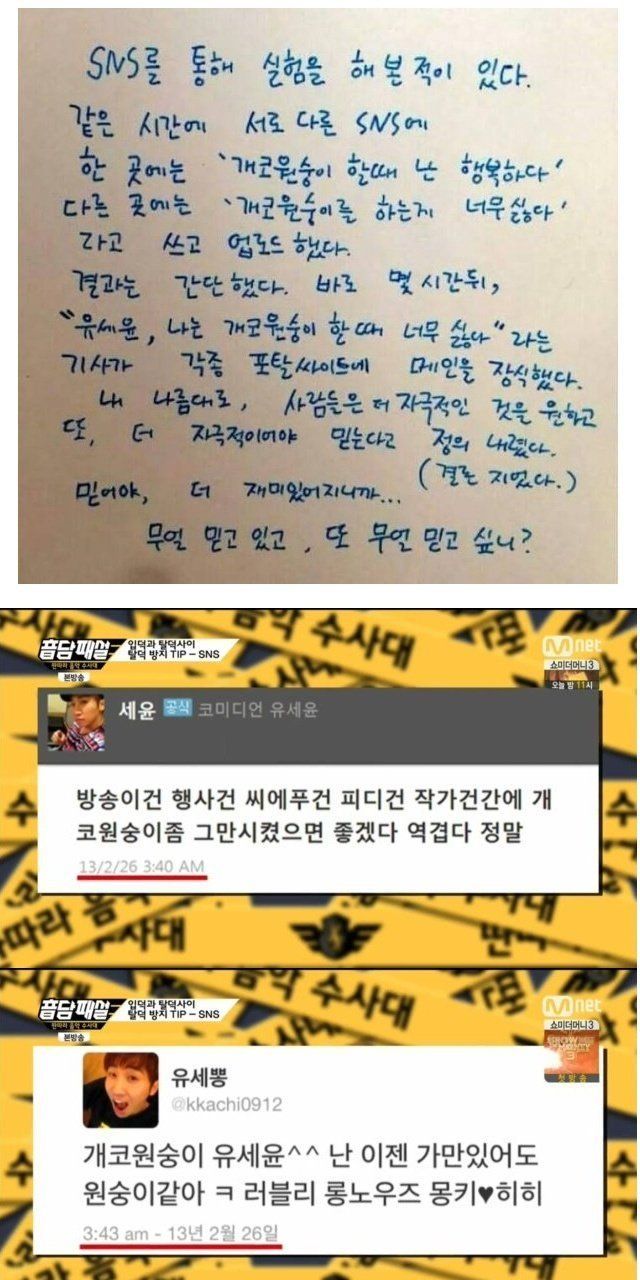 SNS를 통해 실험을 해 본 적이 있다.
같은 시간에 서로 다른 SNS에
한 곳에는 '개코원숭이 할때 난 행복하다'
다른 곳에는 '개코원숭이를 하는게 너무싫다'
라고 쓰고 업로드 했다.
결과는 간단했다. 바로 몇 시간뒤,
"유세윤, 나는 개코원숭이 할 때 너무 싫다" 라는
기사가 각종 포탈싸이트에 메인을 장식했다.
내 나름대로, 사람들은 더 자극적인 것을 원하고
또, 더 자극적이어야 믿는다고 정의 내렸다.
(결론 지었다.)
믿어야, 더 재미있어지니까...
무얼 믿고 있고, 또 무얼 믿고 싶니?
음악 수사대
音담패설
딴따라 음악 수사대
본방송
입덕과 탈덕사이
탈덕 방지 TIP – SNS
Mnet
쇼미더머니3
오늘 밤 11시
세윤 공식 코미디언 유세윤
방송이건 행사건 씨에푸건 피디건 작가건간에 개
코원숭이좀 그만시켰으면 좋겠다 역겹다 정말
13/2/26 3:40 AM
따라 음악 수사대
음악 수사대
音담패설
딴따라 음악 수사대
본방송
입덕과 탈덕사이
탈덕 방지 TIP – SNS
Mnet
쇼미더머니3
SHOW ME THE MONEY 3
첫방송
유세뽕
@kkachi0912
개코원숭이 유세윤^^ 난 이젠 가만있어도
원숭이같아 ㅋ 러블리 롱노우즈 몽키♥히히
3:43 am - 13년 2월 26일